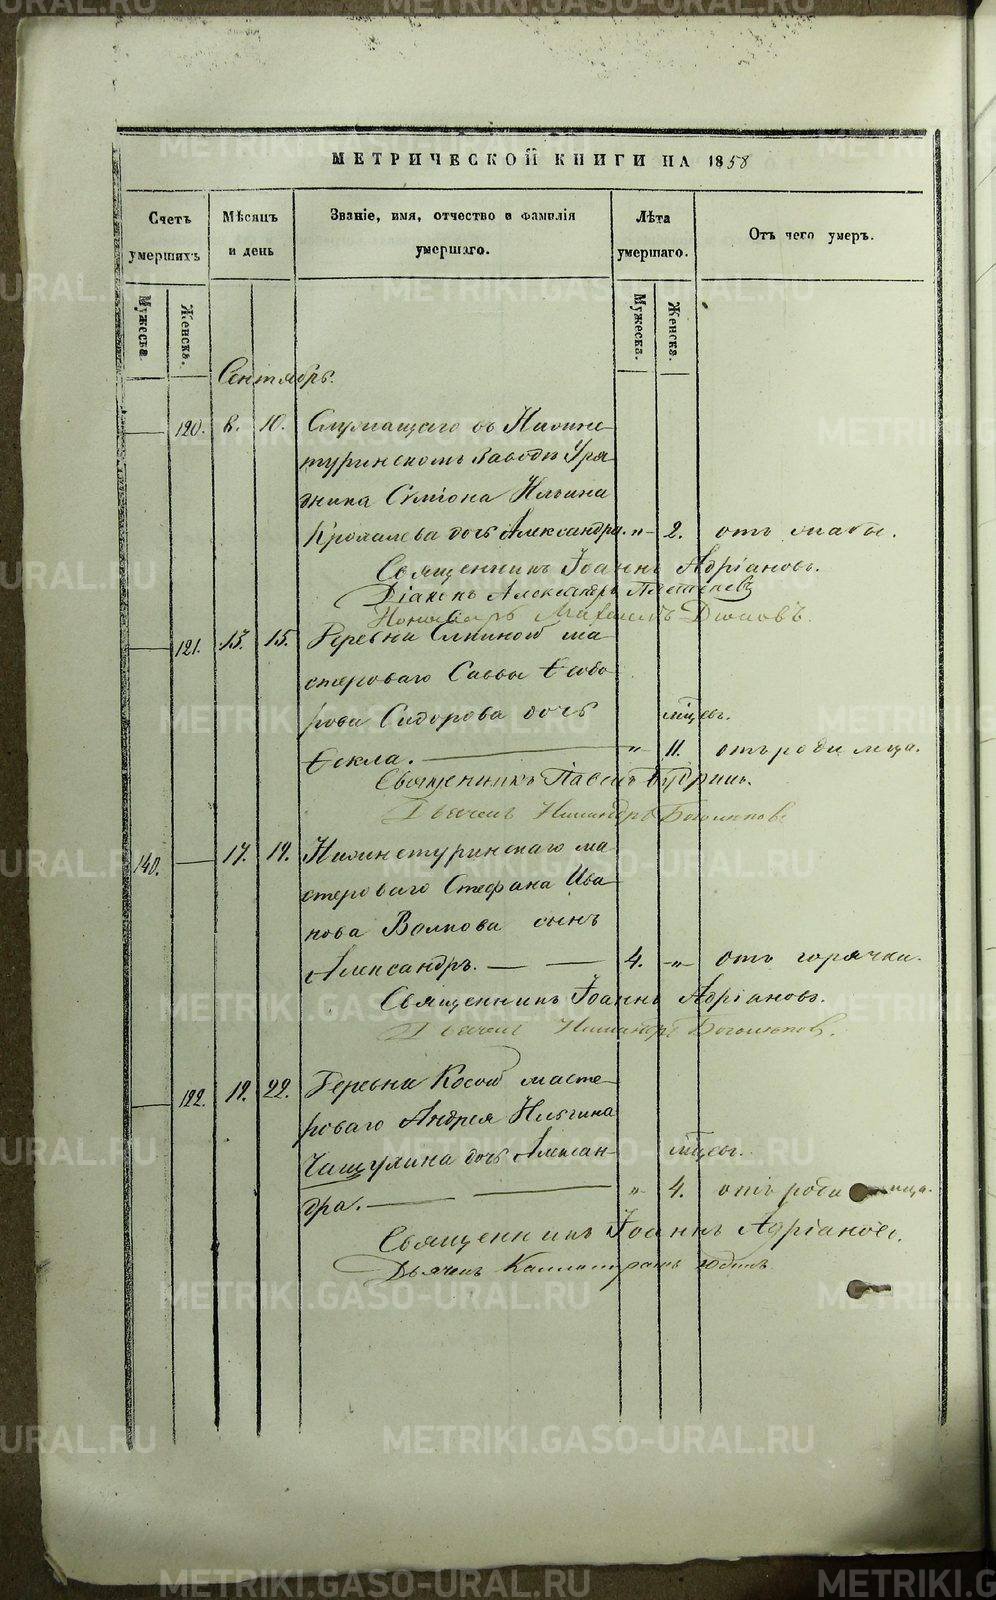 МЕТРИЧЕСКОЙ КНИГИ НА 1858
Счетъ умершихъ
Мѣсяцъ и день
Званіе, имя, отчество и фамилія умершаго.
Лѣта умершаго.
Отъ чего умеръ.
Мужеска.
Женска.
Мужеска.
Женска.
Сентябрь.
120. 8. 10. Служащаго въ Нижне-
туринскомъ заводѣ Уря-
дника Сѵмеона Ильина
дочь Александра. „ 2. отъ жабы.
Священникъ Іоаннъ Адріановъ.
Діаконъ Александръ
Пономарь
121. 13. 15. Деревни Елкиной ма-
стероваго Саввы Ѳедо-
рова Сидорова дочь мѣсяц.
Ѳекла. „ 11. отъ родимца.
Священникъ Павелъ
Дьячекъ Никандръ
140. 17. 19. Нижнетуринскаго ма-
стероваго Стефана Ива-
нова Волкова сынъ
Александръ. 4. „ отъ горячки.
Священникъ Іоаннъ Адріановъ.
Дьячекъ Никандръ
122. 19. 22. Деревни Косой масте-
роваго Андрея Ильина
Чащухина дочь Алексан- мѣсяц.
дра. „ 4. отъ родимца.
Священникъ Іоаннъ Адріановъ.
Дьячекъ Каллистратъ Юдинъ
METRIKI.GASO-URAL.RU